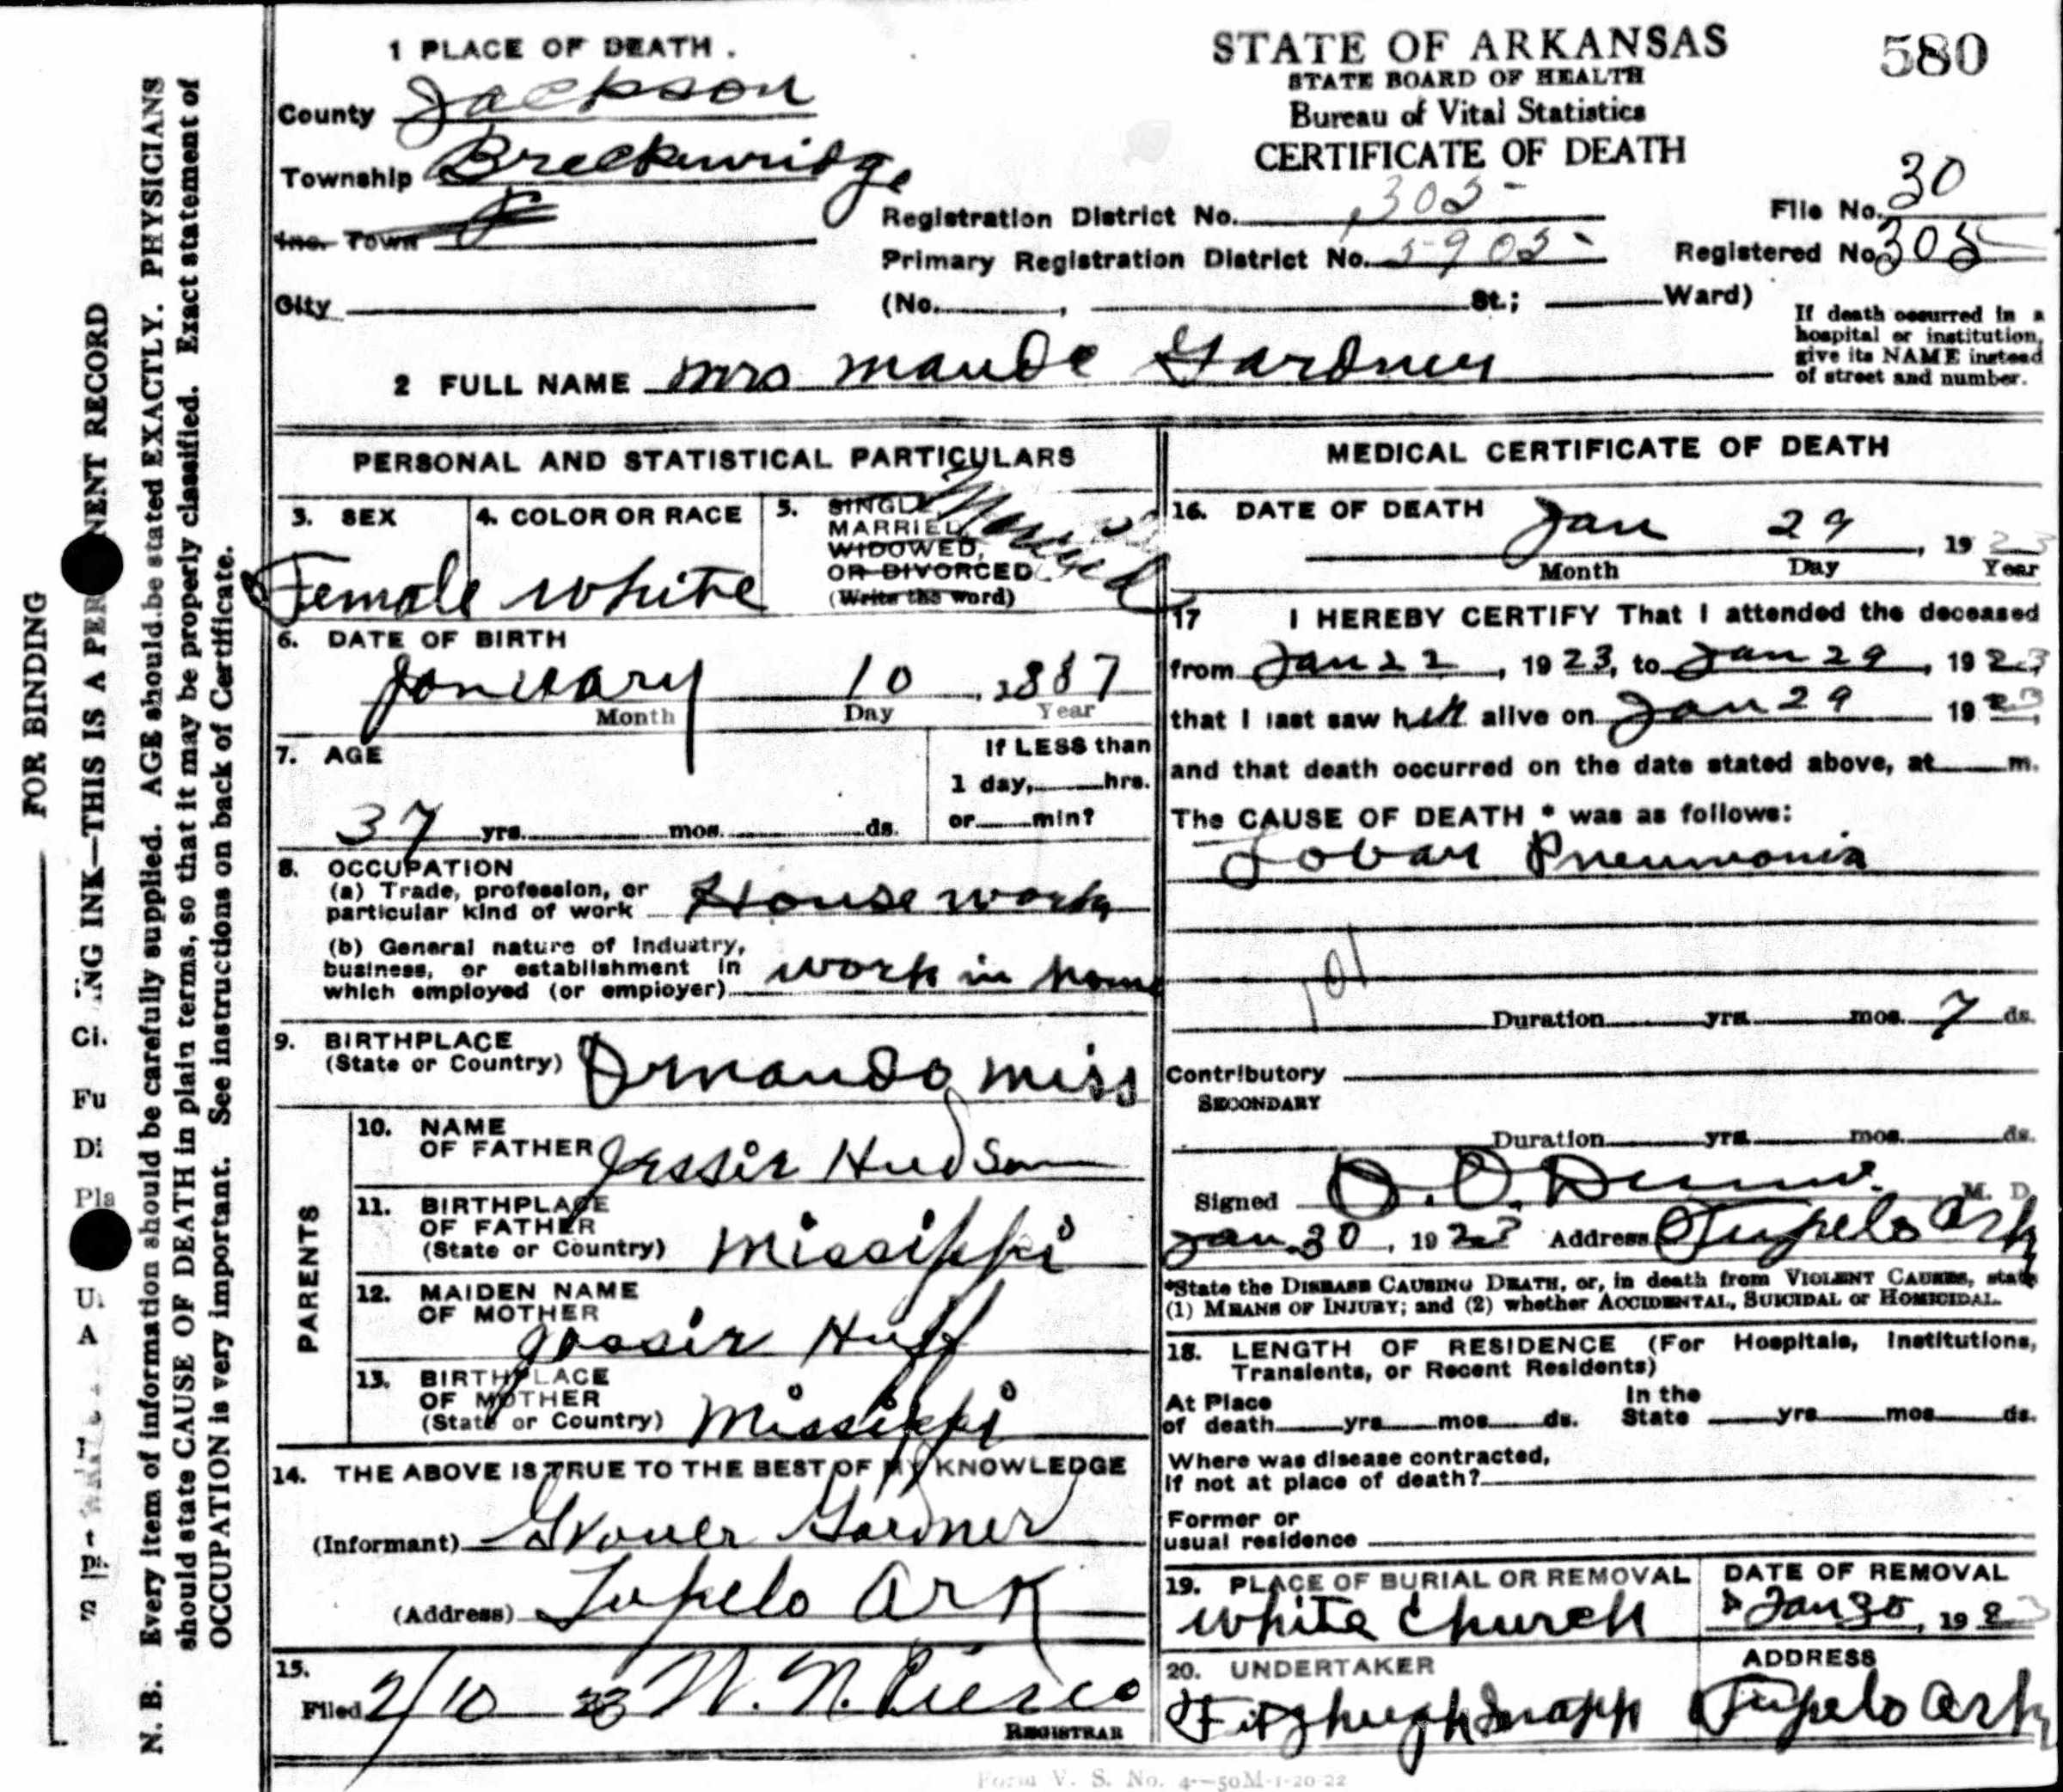 1 PLACE OF DEATH.
County Jackson
Township Breckenridge
Inc. Town
City
STATE OF ARKANSAS
STATE BOARD OF HEALTH
Bureau of Vital Statistics
CERTIFICATE OF DEATH
580
Registration District No. 305
File No. 30
Primary Registration District No. 5905
Registered No. 305
(No. , St.; Ward)
If death occurred in a
hospital or institution,
give its NAME instead
of street and number.
2 FULL NAME Mrs Maude Gardner
PERSONAL AND STATISTICAL PARTICULARS
3. SEX
Female
4. COLOR OR RACE
White
5. SINGLE
MARRIED,
WIDOWED,
OR DIVORCED
(Write the word)
Married
6. DATE OF BIRTH
January 10, 1887
Month Day Year
7. AGE
37 yrs. mos. ds.
If LESS than
1 day, hrs.
or min?
8. OCCUPATION
(a) Trade, profession, or
particular kind of work House work
(b) General nature of Industry,
business, or establishment in
which employed (or employer) work in home
9. BIRTHPLACE
(State or Country) miss
PARENTS
10. NAME
OF FATHER Jessir Hudson
11. BIRTHPLACE
OF FATHER
(State or Country) Missippi
12. MAIDEN NAME
OF MOTHER
Huff
13. BIRTHPLACE
OF MOTHER
(State or Country) Missippi
14. THE ABOVE IS TRUE TO THE BEST OF MY KNOWLEDGE
(Informant) Grover Gardner
(Address) Tupelo Ark
15.
Filed 2/10 23 W. N. Pierce
REGISTRAR
MEDICAL CERTIFICATE OF DEATH
16. DATE OF DEATH Jan 29, 1923
Month Day Year
17 I HEREBY CERTIFY That I attended the deceased
from Jan 22, 1923, to Jan 29, 1923
that I last saw her alive on Jan 29 1923,
and that death occurred on the date stated above, at m.
The CAUSE OF DEATH * was as follows:
Lobar Pneumonia
101
Duration yrs. mos. 7 ds.
Contributory
SECONDARY
Duration yrs. mos. ds.
Signed M. D.
Jan. 30, 1923 Address Tupelo Ark
*State the DISEASE CAUSING DEATH, or, in death from VIOLENT CAUSES, state
(1) MEANS OF INJURY; and (2) whether ACCIDENTAL, SUICIDAL or HOMICIDAL.
18. LENGTH OF RESIDENCE (For Hospitals, Institutions,
Transients, or Recent Residents)
At Place
of death yrs mos ds.
In the
State yrs mos ds.
Where was disease contracted,
If not at place of death?
Former or
usual residence
19. PLACE OF BURIAL OR REMOVAL
White Church
DATE OF REMOVAL
Jan 30, 1923
20. UNDERTAKER
Fitzhugh Snapp
ADDRESS
Tupelo Ark
Form V. S. No. 4--50M-1-20-22
FOR BINDING
NG INK—THIS IS A PER NENT RECORD
N. B. Every item of information should be carefully supplied. AGE should be stated EXACTLY. PHYSICIANS
should state CAUSE OF DEATH in plain terms, so that it may be properly classified. Exact statement of
OCCUPATION is very important. See instructions on back of Certificate.